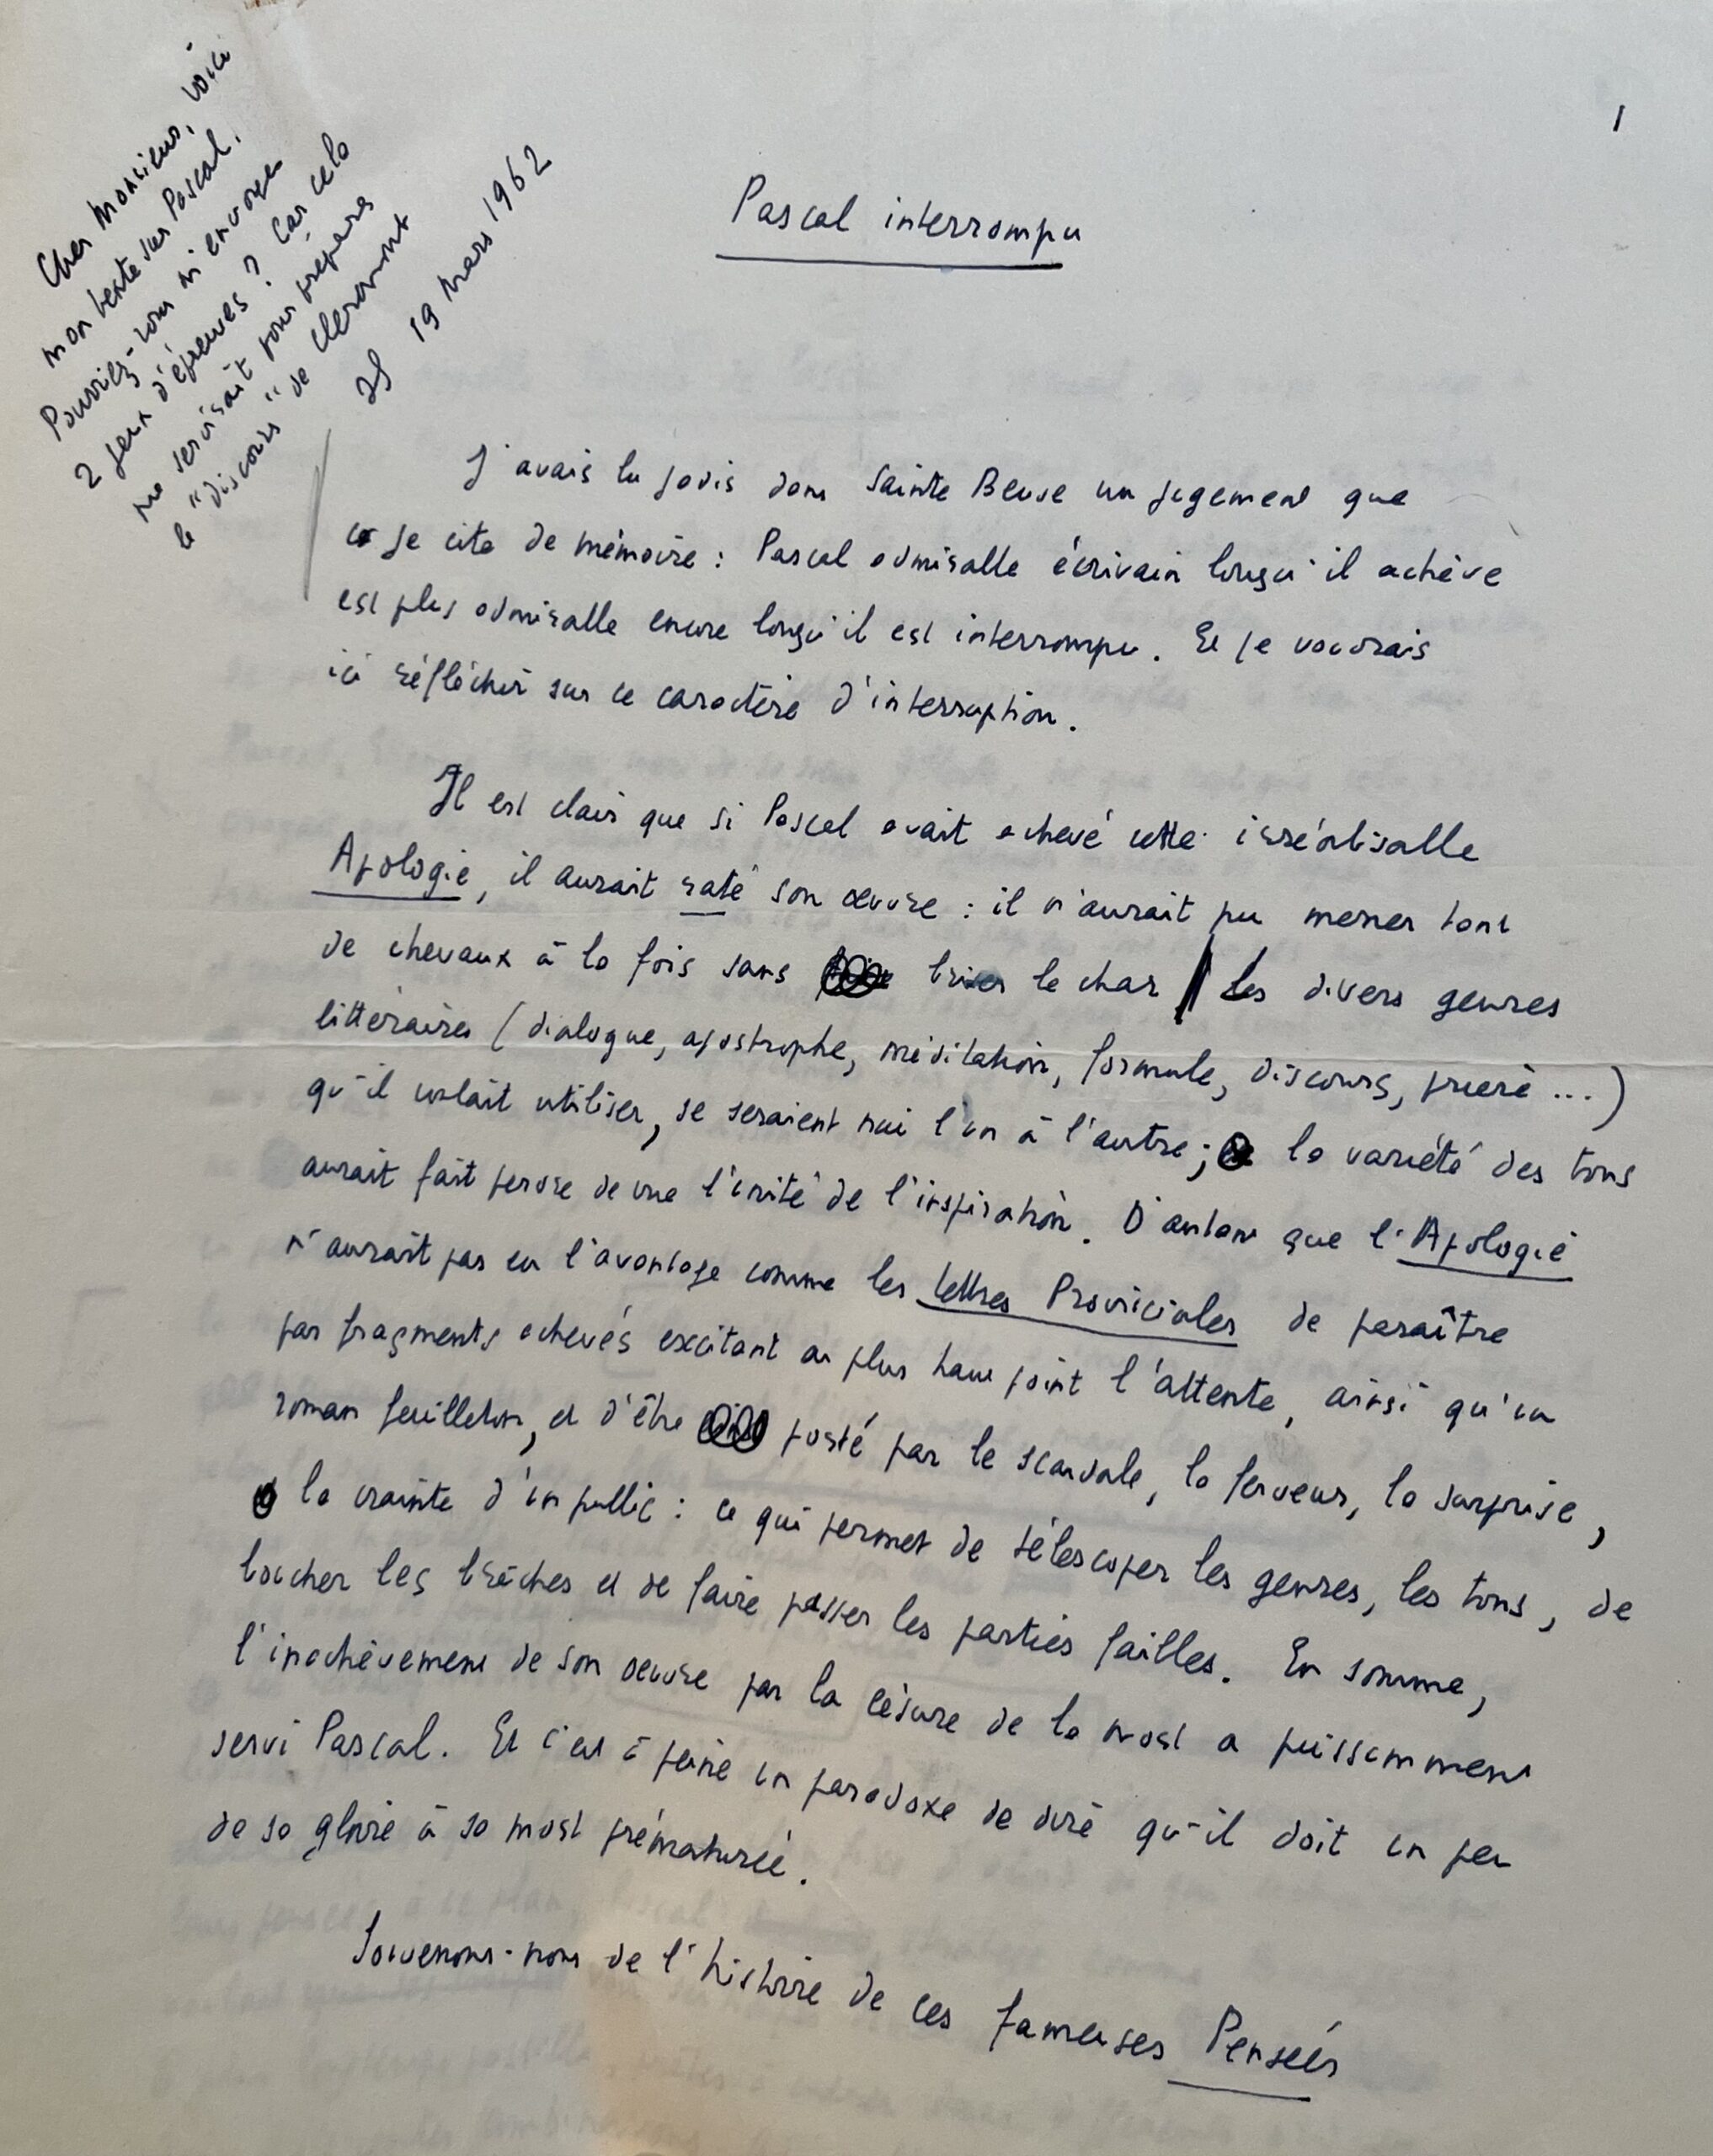 1
Cher Monsieur, voici
mon texte sur Pascal.
Pouviez-vous m'envoyer
2 jeux d'épreuves ? Car cela
me servirait pour préparer
le "discours" de Clermont
JG 19 mars 1962
Pascal interrompu
J'avais lu jadis dans Sainte Beuve un jugement que
je cite de mémoire : Pascal admirable écrivain lorsqu'il achève
est plus admirable encore lorsqu'il est interrompu. Et je voudrais
ici réfléchir sur ce caractère d'interruption.
Il est clair que si Pascal avait achevé cette irréalisable
Apologie, il aurait raté son œuvre : il n'aurait pu mener tant
de chevaux à la fois sans briser le char // Les divers genres
littéraires (dialogue, apostrophe, méditation, formule, discours, prière ...)
qu'il voulait utiliser, se seraient nui l'un à l'autre ; la variété des tons
aurait fait perdre de vue l'unité de l'inspiration. D'autant que l'Apologie
n'aurait pas eu l'avantage comme les Lettres Provinciales de paraître
par fragments achevés excitant au plus haut point l'attente, ainsi qu'un
roman feuilleton, et d'être porté par le scandale, la ferveur, la surprise,
la crainte d'un public : ce qui permet de télescoper les genres, les tons, de
boucher les brèches et de faire passer les parties faibles. En somme,
l'inachèvement de son œuvre par la césure de la mort a puissamment
servi Pascal. Et c'est à peine un paradoxe de dire qu'il doit un peu
de sa gloire à sa mort prématurée.
Souvenons-nous de l'histoire de ces fameuses Pensées